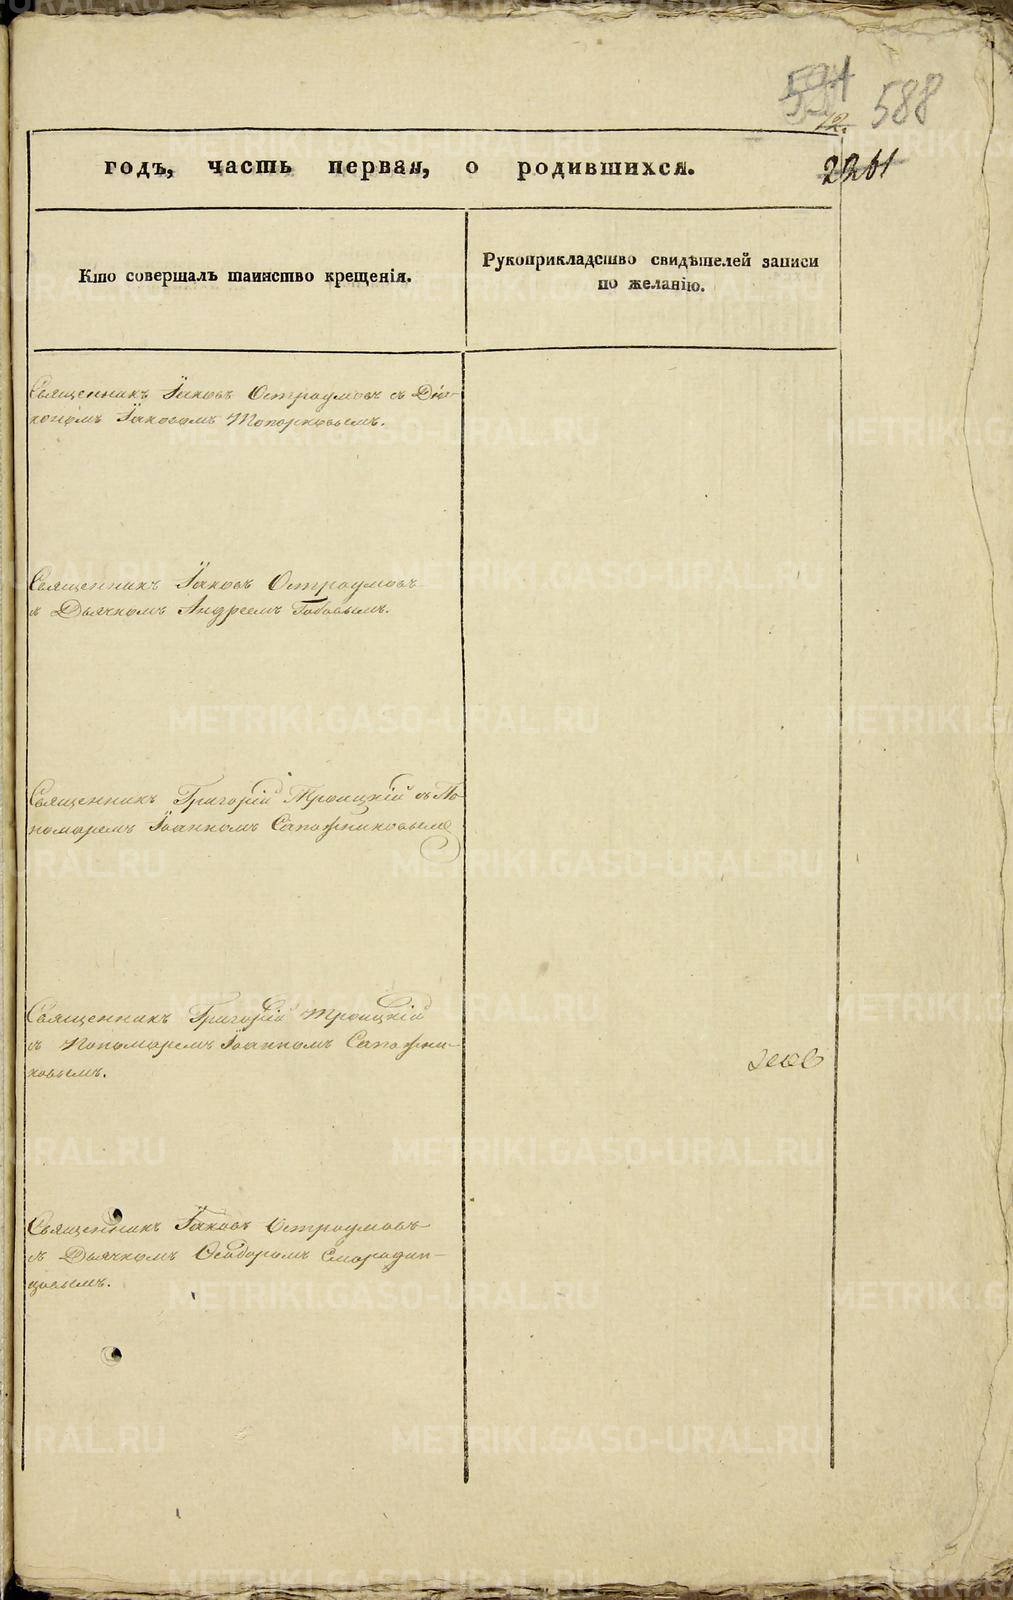 588
12.
2261
годъ, часть первая, о родившихся.
Кто совершалъ таинство крещенія.
Рукоприкладство свидѣтелей записи
по желанію.
Священникъ Іаковъ Остроумовъ съ Діа-
кономъ Іаковомъ Топорковымъ.
Священникъ Іаковъ Остроумовъ
съ Дьячкомъ Андреемъ
Священникъ Григорій Троицкій съ По-
номаремъ Іоанномъ Сапожниковымъ
Священникъ Григорій Троицкій
съ Пономаремъ Іоанномъ Сапожни-
ковымъ.
Священникъ Іаковъ Остроумовъ
съ Дьячкомъ Ѳеодоромъ Смородин-
цовымъ.
METRIKI.GASO-URAL.RU